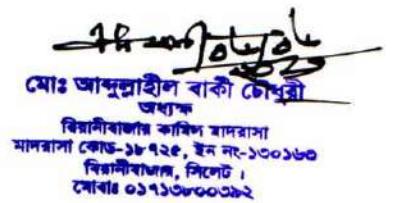 মোঃ আব্দুল্লাহীল বাকী চৌধুরী
অধ্যক্ষ
বিয়ানীবাজার কামিল মাদরাসা
মাদরাসা কোড-১৮৭২৫, ইন নং-১৩০১৬৩
বিয়ানীবাজার, সিলেট ।
মোবাঃ ০১৭১৩৮০০৩৯২